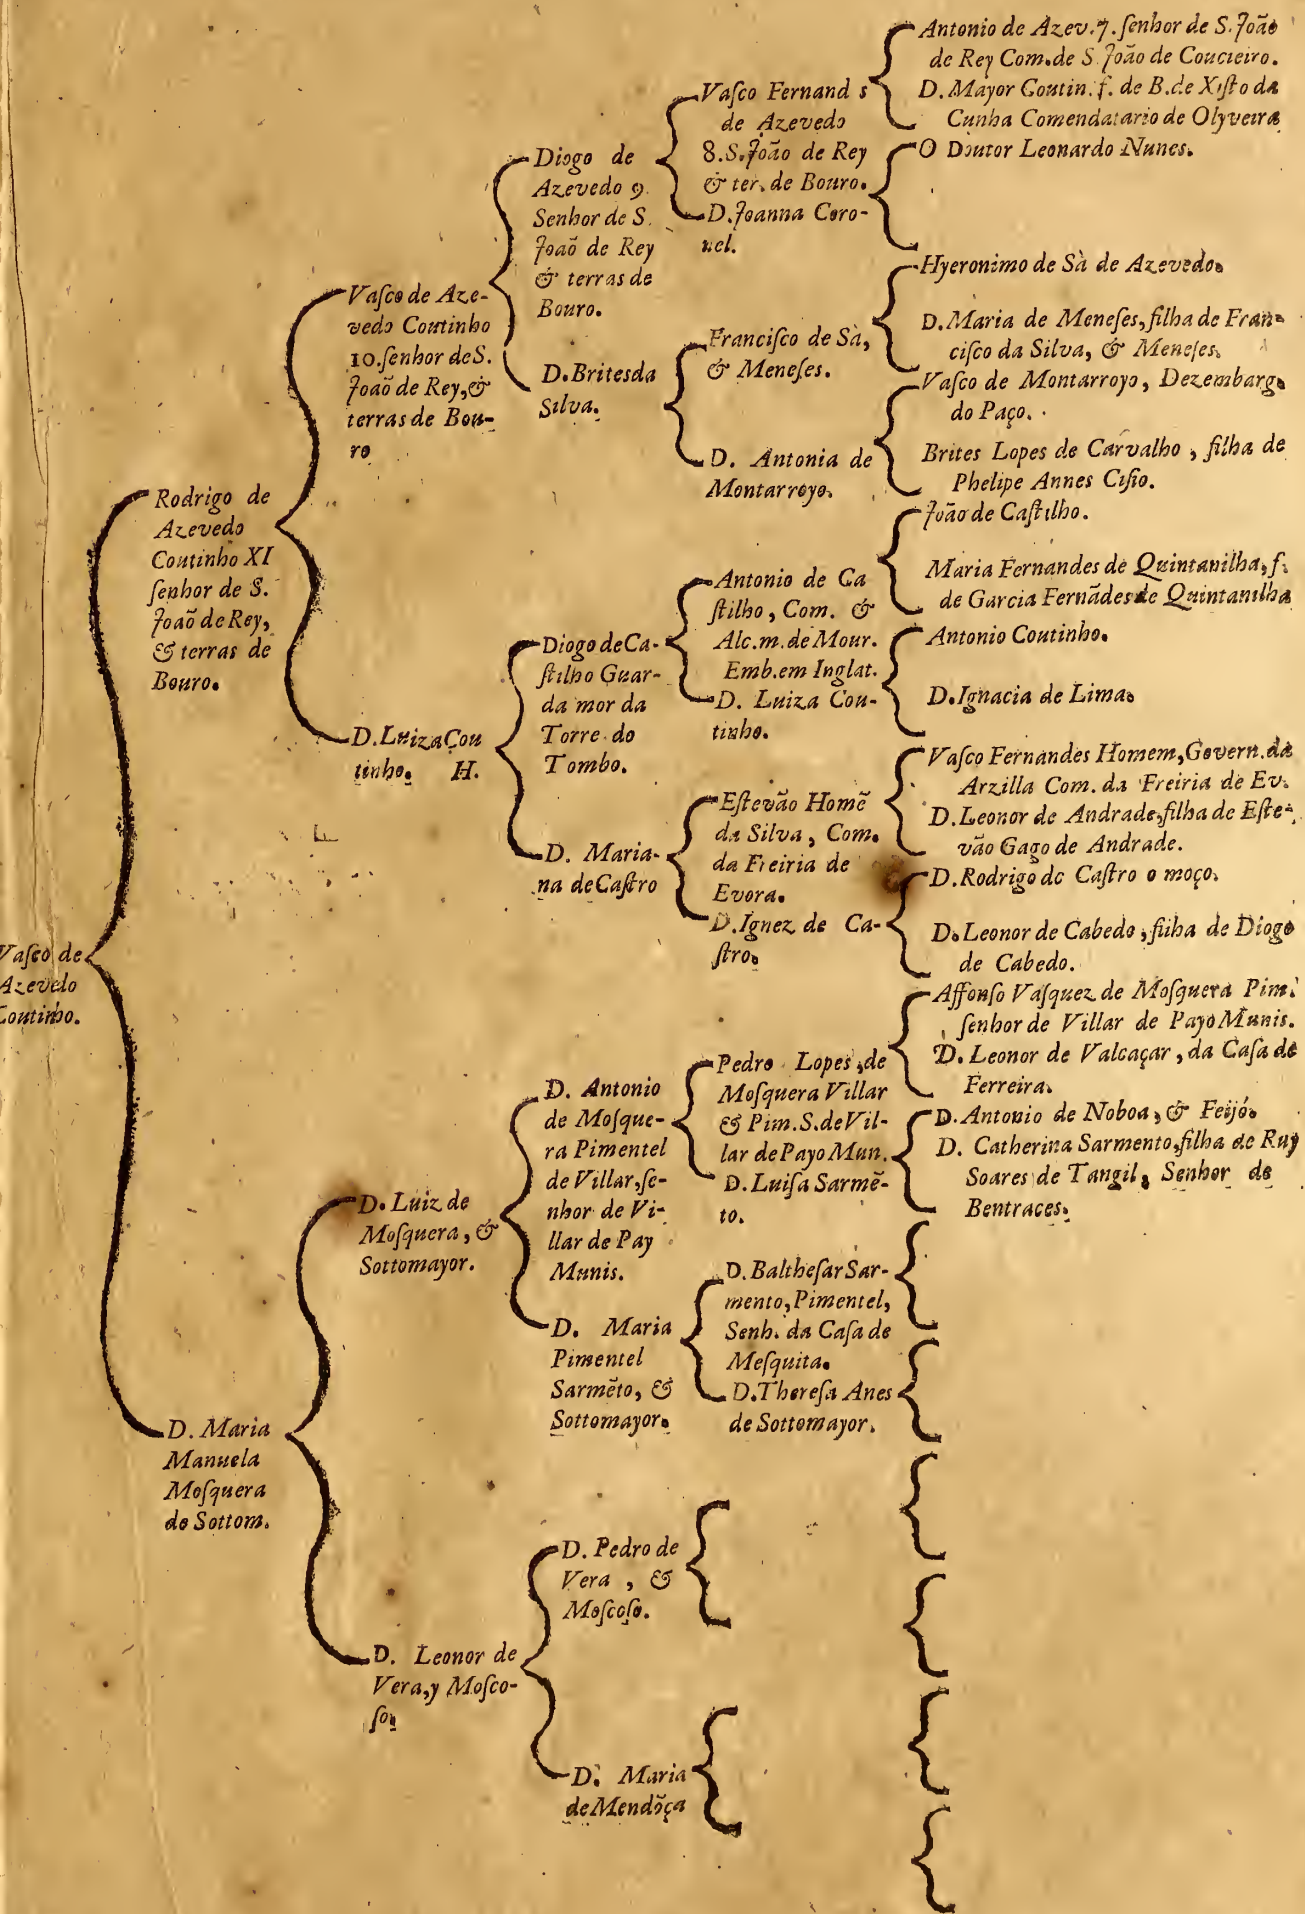 Vaſco de
Azevedo
Coutinho.
Rodrigo de
Azevedo
Coutinho XI
ſenhor de S.
Joaõ de Rey,
& terras de
Bouro.
D. Maria
Manuela
Moſquera
de Sottom.
Vaſco de Aze-
vedo Coutinho
10. ſenhor de S.
Joaõ de Rey, &
terras de Bou-
ro
D. Luiza Cou
tinho. H.
D. Luiz de
Moſquera, &
Sottomayor.
D. Leonor de
Vera, y Moſco-
ſo.
Diogo de
Azevedo 9.
Senhor de S.
Joaõ de Rey
& terras de
Bouro.
D. Brites da
Silva.
Diogo de Ca-
ſtilho Guar-
da mor da
Torre do
Tombo.
D. Maria-
na de Caſtro
D. Antonio
de Moſque-
ra Pimentel
de Villar, ſe-
nhor de Vi-
llar de Pay
Munis.
D. Maria
Pimentel
Sarmẽto, &
Sottomayor.
D. Pedro de
Vera, &
Moſcoſo.
D. Maria
de Mendõça
Vaſco Fernand s
de Azevedo
8. S. João de Rey
& ter. de Bouro.
D. Joanna Coro-
nel.
Franciſco de Sà,
& Meneſes.
D. Antonia de
Montarroyo.
Antonio de Ca
ſtilho, Com. &
Alc. m. de Mour.
Emb. em Inglat.
D. Luiza Cou-
tinho.
Eſtevão Homẽ
da Silva, Com.
da Freiria de
Evora.
D. Ignez de Ca-
ſtro.
Pedro Lopes, de
Moſquera Villar
& Pim. S. de Vil-
lar de Payo Mun.
D. Luiſa Sarmẽ-
to.
D. Baltheſar Sar-
mento, Pimentel,
Senh. da Caſa de
Meſquita.
D. Thereſa Anes
de Sottomayor.
Antonio de Azev. 7. ſenhor de S. João
de Rey Com. de S. João de Coucieiro.
D. Mayor Goutin. f. de B. de Xiſto da
Cunha Comendatario de Olyveira
O Doutor Leonardo Nunes.
Hyeronimo de Sà de Azevedo.
D. Maria de Meneſes, filha de Fran-
ciſco da Silva, & Meneſes.
Vaſco de Montarroyo, Dezembarg.
do Paço.
Brites Lopes de Carvalho, filha de
Phelipe Annes Ciſio.
João de Caſtilho.
Maria Fernandes de Quintanilha, f.
de Garcia Fernãdes de Quintanilha
Antonio Coutinho.
D. Ignacia de Lima.
Vaſco Fernandes Homem, Govern. da
Arzilla Com. da Freiria de Ev.
D. Leonor de Andrade, filha de Eſte-
vão Gago de Andrade.
D. Rodrigo de Caſtro o moço.
D. Leonor de Cabedo, filha de Diogo
de Cabedo.
Affonſo Vaſquez de Moſquera Pim.
ſenhor de Villar de Payo Munis.
D. Leonor de Valcaçar, da Caſa de
Ferreira.
D. Antonio de Noboa, & Feijó.
D. Catherina Sarmento, filha de Ruy
Soares de Tangil, Senhor de
Bentraces.